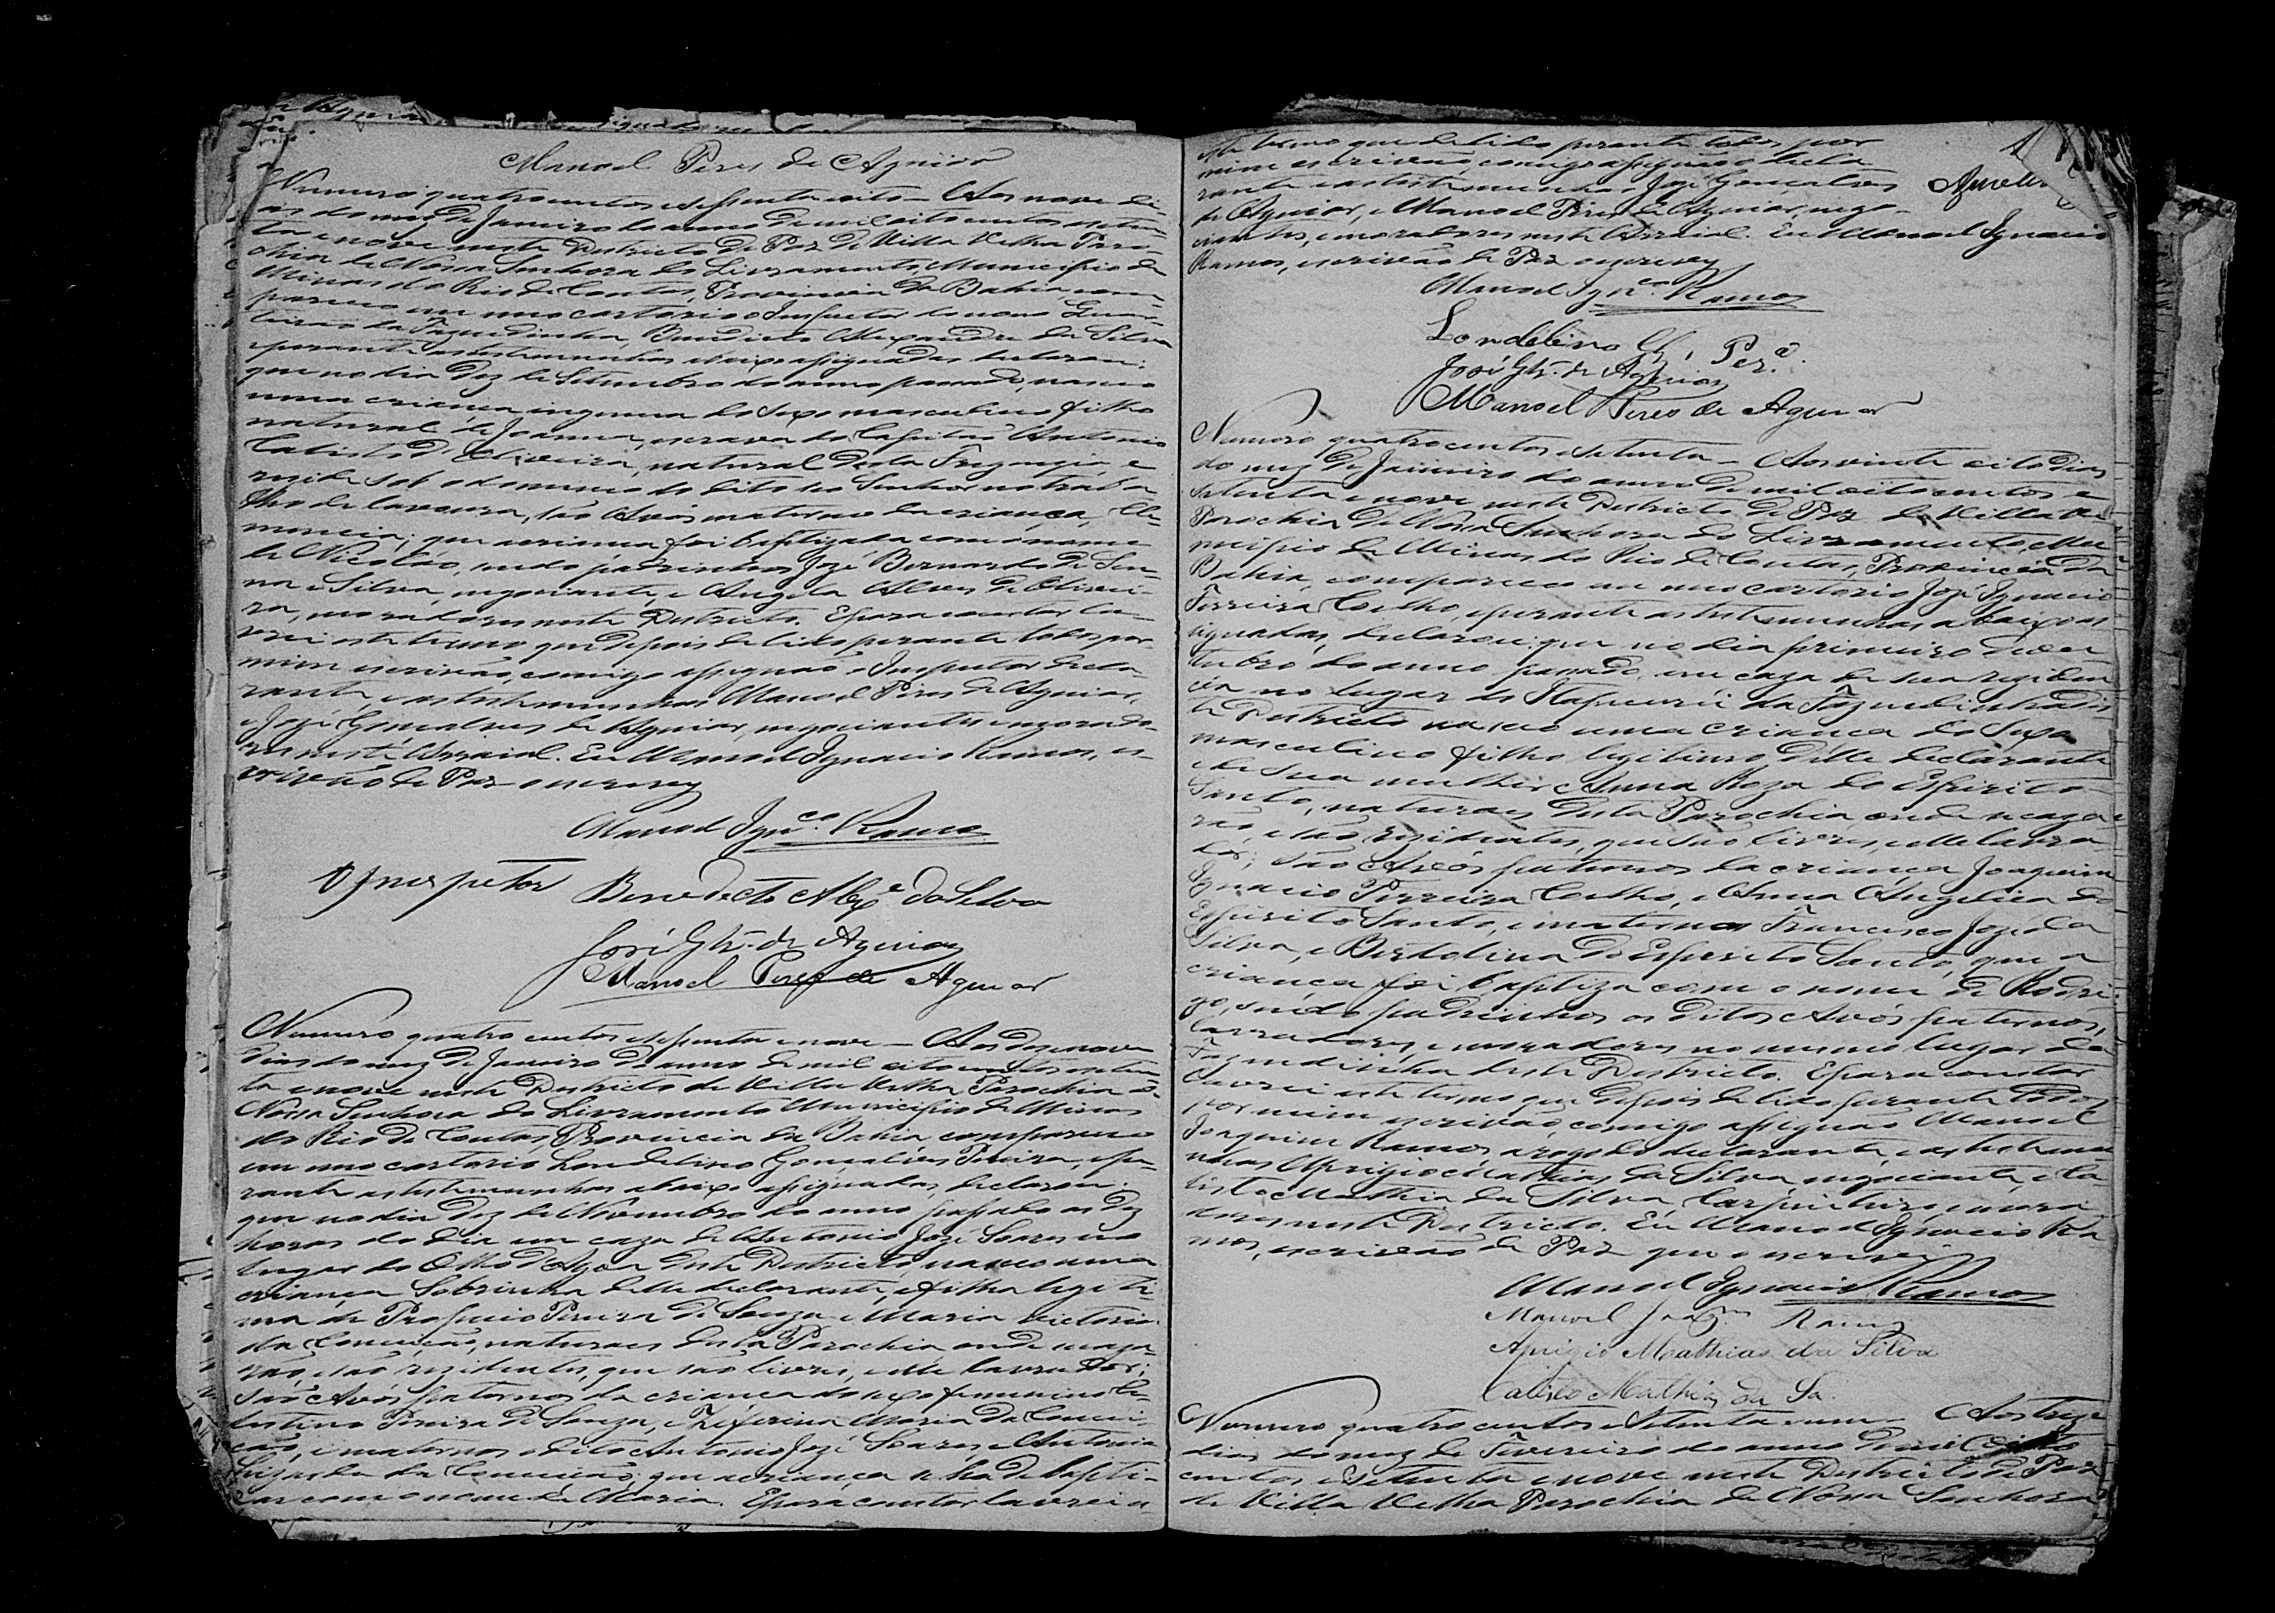 Manoel Pires de Aguiar
Numero quatro centos e sessenta e oito — Aos nove di-
as do mez de Janeiro do anno de mil oito centos e seten-
ta e nove neste Districto de Paz de Villa Velha Paro-
chia de Nossa Senhora do Livramento, Municipio de
Minas do Rio de Contas, Provincia da Bahia, com-
pareceu em meo cartorio o Inspector do nono Quar-
teirão da Fazendinha, Benedicto Alexandre da Silva
e perante as testemunhas abaixo assignadas declarou:
que no dia dez de Setembro do anno passado, nasceo
uma criança ingenua do sexo masculino filho
natural de Joanna, escrava do Capitão Antonio
Calisto d'Oliveira, natural desta Freguezia, e
rezide sob o dominio do dito seo Senhor no traba
lho de lavoura, são Avós materno da criança, Cle-
mencia; que a criança foi baptizada com o nome
de Nicoláo, sendo padrinhos José Bernardo de Sen-
na e Silva, negociante, e Angela Alves de Olivei-
ra, moradores neste Districto. E para constar la-
vrei este termo que depois de lido perante todos por
mim escrivão, comigo assignão o Inspector decla-
rante, e as testemunhas Manoel Pires de Aguiar,
e José Gonçalves de Aguiar, negociantes e morado-
res neste Arraial. Eu Manoel Ignacio Ramos, es-
crivão de Paz o escrevy
Manoel Ign.co Ramos
O Inespetor Benedecto Alex.e da Silva
José Glz. de Aguiar
Manoel Pires de Aguiar
Numero quatro centos e sessenta e nove — Aos dezenove
dias do mez de Janeiro do anno de mil oito centos e seten-
ta e nove neste Districto de Villa Velha Parochia de
Nossa Senhora do Livramento Municipio de Minas
do Rio de Contas, Provincia da Bahia compareceo
em meo cartorio Londelino Gonçalves Pereira, e pe-
rante as testemunhas abaixo assignadas, declarou:
que no dia dez de Novembro do anno passado as dez
horas do dia em caza de Antonio José Soares no
lugar do Olho d'Agoa deste Districto, nasceo uma
criança Sobrinha delle declarante, e filha legiti-
ma de Profirio Pereira de Souza e Maria Victoria
da Conceição, naturaes desta Parochia onde se caza-
rão, e são rezidentes, que são livres, e elle lavrador;
são Avós paternos da criança do sexo femenino Ce-
lestino Pereira de Souza, e Zeferina Maria da Concei-
ção, e maternos o dito Antonio José Soares e Antonia
da Conceição; que a criança se ha de bapti-
zar com o nome de Maria. E para constar lavrei o
este termo que de lido perante todos por
mim escrivão, comigo assignão o decla
rante e as testemunhas José Gonçalves
de Aguiar, e Manoel Pires de Aguiar, nego-
ciantes, e moradores neste Arraial. Eu Manoel Ignacio
Ramos, escrivão de Paz o escrevy
Manoel Ign.co Ramos
Londelino Glz. Per.a
José Glz. de Aguiar
Manoel Pires de Aguiar
Numero quatro centos e setenta — Aos vinte e oito dias
do mez de Janeiro do anno de mil oito centos e
setenta e nove neste Districto de Paz de Villa Ve
Parochia de Nossa Senhora do Livramento, Mu
nicipio de Minas do Rio de Contas, Provincia da
Bahia, compareceo em meo cartorio José Ignacio
Ferreira Coelho, e perante as testemunhas abaixo as
signadas, declarou: que no dia primeiro de ou
tubro do anno passado, em caza de sua reziden
cia no lugar do Itapicurú da Fazendinha des
te Districto nasceo uma criança do sexo
masculino filho legitimo delle declarante
e de sua mulher Anna Roza do Espirito
Santo, naturaes desta Parochia onde se caza
rão, e são rezidentes, que são livres, e elle lavra
dor; são Avós paternos da criança Joaquim
Ignacio Ferreira Coelho, e Anna Angelica do
Espirito Santo, e maternos Francisco José da
Silva, e Bertolina do Espirito Santo, que a
criança foi baptiza com o nome de Rodri
go, sendo padrinhos os ditos Avós paternos,
lavradores, e moradores no mesmo lugar da
Fazendinha deste Districto. E para constar
lavrei este termo que depois de lido perante todos
por mim escrivão, comigo assignão Manoel
Joaquim Ramos, a rogo do declarante, e as testemu
nhas Aprigio Mathias da Silva, negociante, e Ca
listo Mathia da Silva, Carpinteiro, e mora
dores neste Districto. Eu Manoel Ignacio Ra
mos, escrivão de Paz que o escrevi
Manoel Ignacio Ramos
Manoel Joaq.m Ramos
Aprigio Mathias da Silva
Calisto Mathias da Sa
Numero quatro centos e setenta e um — Aos treze
dias do mez de Fevereiro do anno de mil oito
centos e setenta e nove neste Districto de Paz
de Villa Velha Parochia de Nossa Senhora